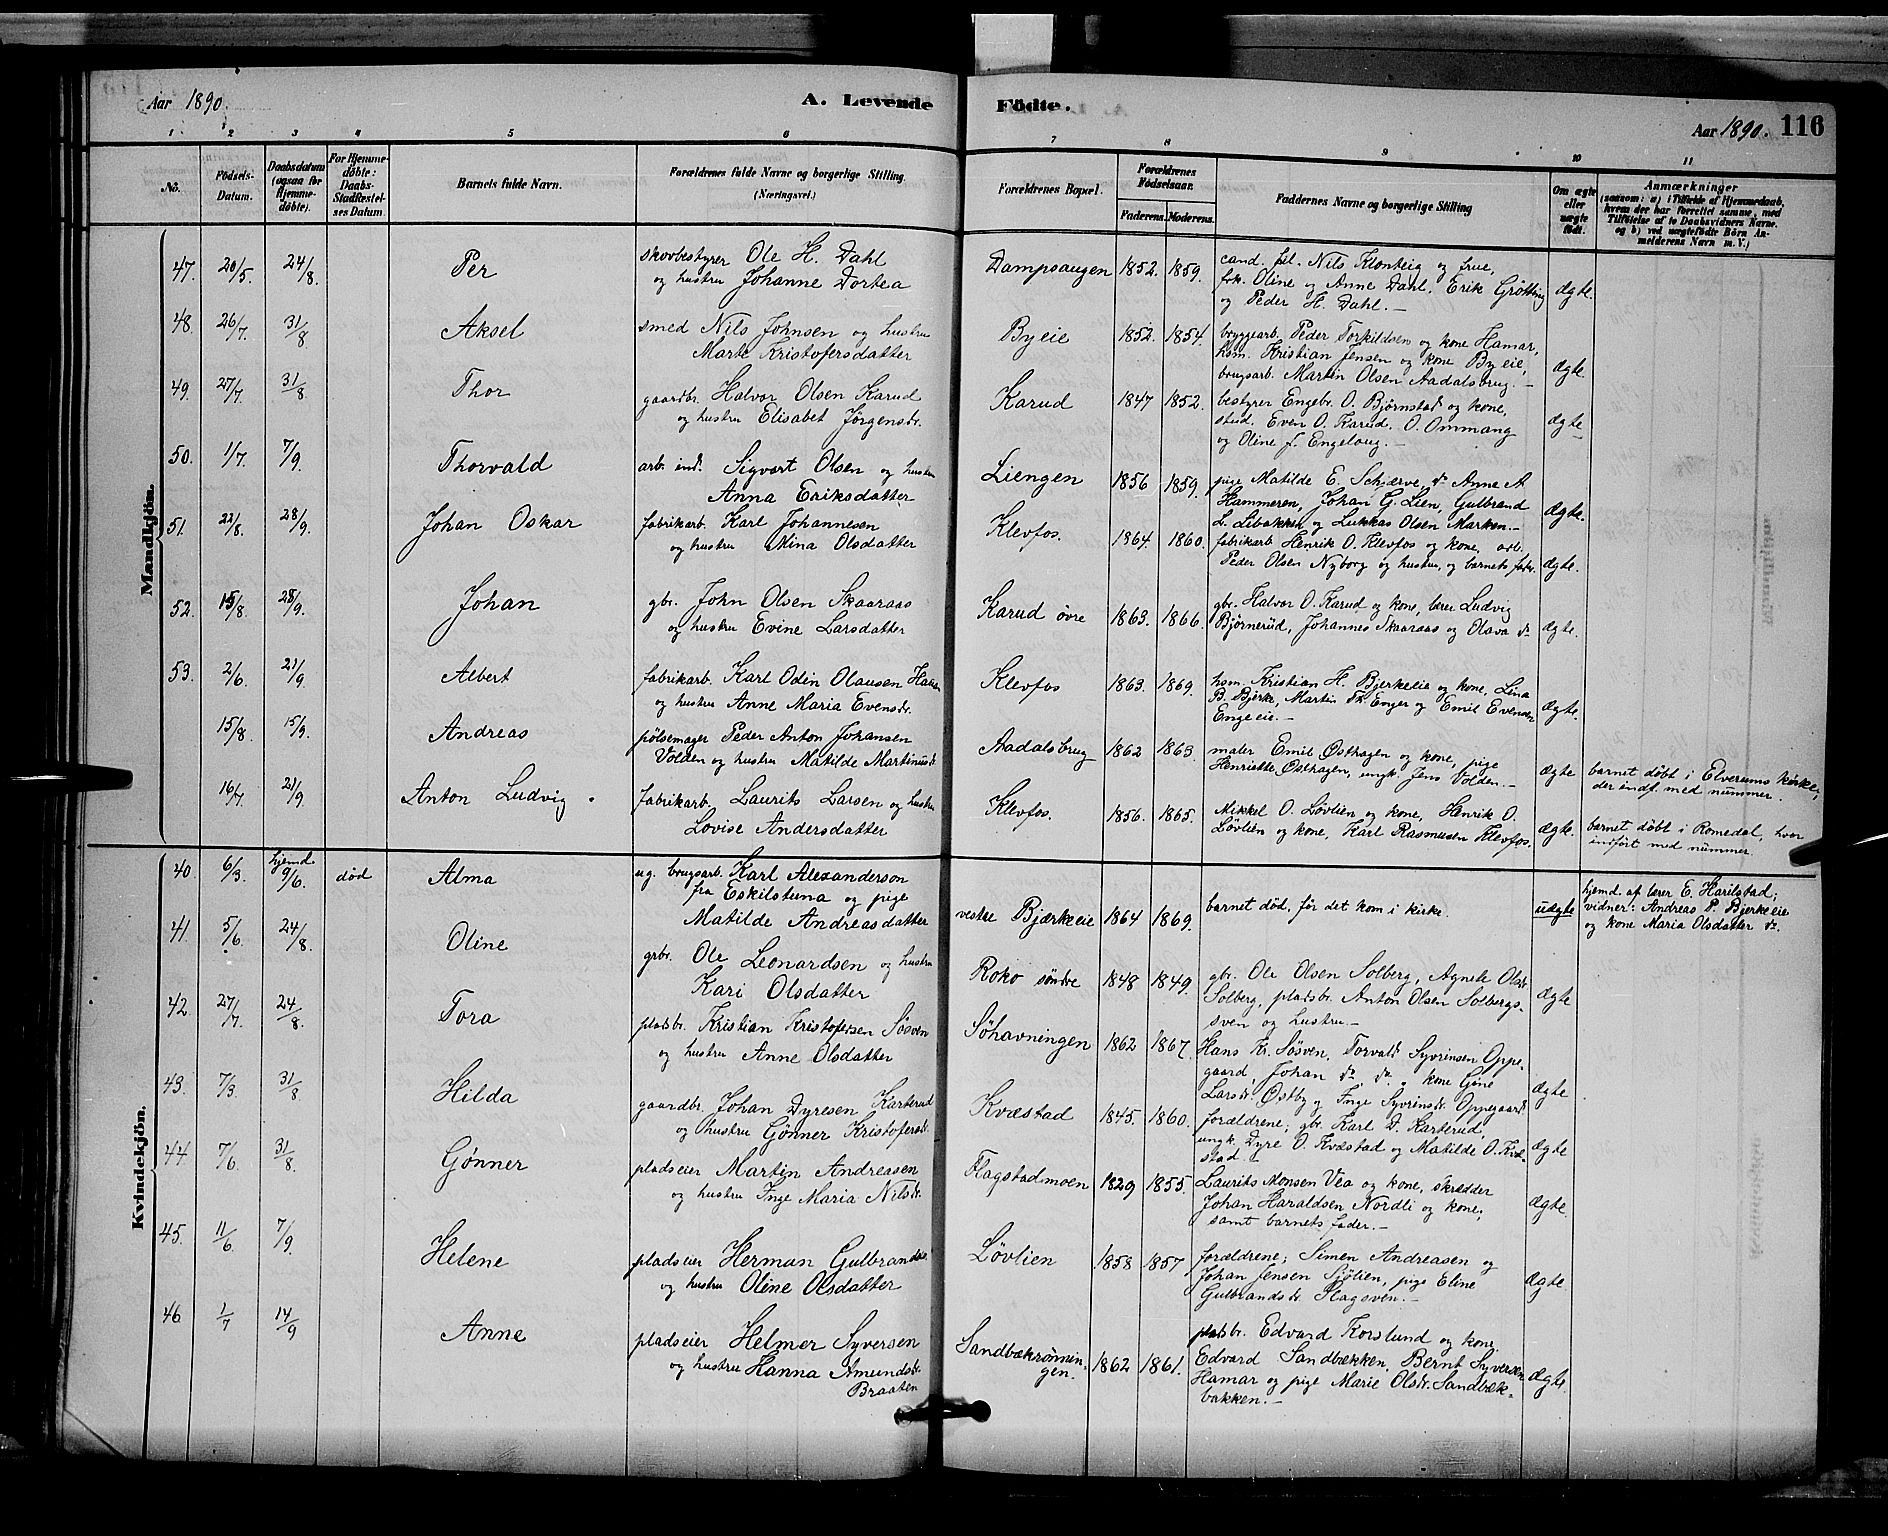 Aar 1890.
A. Levende
Födte.
Aar 1890.
116
1 2 3 4 5 6 7 8 9 10 11
No.
Födsels-
Datum.
Daabsdatum
(ogsaa for
Hjemme-
döbte).
For Hjemme-
döbte:
Daabs-
Stadfæstel-
ses Datum.
Barnets fulde Navn.
Forældrenes fulde Navne og borgerlige Stilling
(Næringsvei.)
Forældrenes Bopæl.
Forældrenes
Födselsaar.
Faderens. Moderens.
Faddernes Navne og borgerlige Stilling
Om ægte
eller
uægte
født.
Anmærkninger
(saasom: a) i Tilfælde af Hjemmedaab,
hvem der har forrettet samme, med
Tilföielse af to Daabsvidners Navne.
og b) ved uægtefödte Börn An-
melderens Navn m. V.)
Mandkjön.
47. 20/5 24/8. Per
skovbestyrer Ole H. Dahl
og hustru Johanne Dortea
Dampsaugen 1852. 1859.
cand. fil. Nils Klonteig og frue,
frk. Oline og Anne Dahl, Erik Grötting
og Peder H. Dahl. —
ægte.
48. 26/7. 31/8 Aksel
smed Nils Johnsen og hustru
Marte Kristofersdatter
Byeie 1852. 1854.
bryggearb. Peder Torkildsen og kone Hamar,
hsm. Kristian Jensen og kone Byeie,
brugsarb. Martin Olsen Aadalsbrug. —
ægte.
49. 27/7. 31/8 Thor
gaardbr. Halvor Olsen Karud
og hustru Elisabet Jørgensdr.
Karud 1847 1852.
bestyrer Engebr. O. Bjørnstad og kone,
stud. Even O. Karud. O. Ommang
og Oline J. Engelaug. —
ægte
50. 1/7. 7/9. Thorvald
arb. ind. Sigvart Olsen og hustru
Anna Eriksdatter
Liengen 1856 1859.
pige Matilde E. Schjerve, do Anne A
Hammeren, Johan G. Lien, Gulbrand
L. Libakken og Lukkas Olsen Marken. —
ægte.
51. 22/8. 28/9. Johan Oskar
fabrikarb. Karl Johannesen
og hustru Mina Olsdatter
Klevfos. 1864. 1860.
fabrikarb Henrik O. Klevfos og kone, arb.
Peder Olsen Nyborg og hustru, og barnets fader.
ægte.
52. 15/8 28/9. Johan
gbr. John Olsen Skaaraas
og hustru Evine Larsdatter
Karud øvre 1863. 1866.
gbr. Halvor O. Karud og kone, lærer Ludvig
Bjørnerud, Johannes Skaaraas og Olava do
ægte.
53. 2/6. 21/9. Albert
fabrikarb. Karl Odin Olausen
og hustru Anne Maria Evensdr.
Klevfos 1863. 1869.
hsm. Kristian H. Bjerkeeie og kone, Lina
B. Bjerke, Martin Th. Enger og Emil Evensen
Engeeie. —
ægte.
15/8. 15/9. Andreas
pølsemager Peder Anton Johansen
Volden og hustru Matilde Martinusdr
Aadalsbrug 1862 1863
maler Emil Østhagen og kone, pige
Henriette Østhagen, ungk. Jens Volden. —
Ægte
barnet døbt i Elverums kirke,
der indf. med nummer.
16/7. 21/9. Anton Ludvig.
fabrikarb. Laurits Larsen og hustru
Lovise Andersdatter
Klevfos. 1856. 1865.
Mikkel O. Løvlien og kone, Henrik O.
Løvlien og kone, Karl Rasmussen Klevfos.
Ægte.
barnet døbt i Romedal, hvor
indført med nummer.
Kvindekjön.
40. 6/3. hjemd. 9/6. død Alma
ug. brugsarb. Karl Alexanderson
fra Eskilstuna og pige
Matilde Andreasdatter
vestre Bjærkeeie 1864 1869.
barnet død. før det kom i kirke.
uægte
hjemd. af lærer E. Harilstad;
vidner: Andreas P. Bjerkeeie
og kone Maria Olsdatter do.
41. 5/6. 24/8. Oline
grbr. Ole Leonardsen og hustru
Kari Olsdatter
Roko søndre 1848 1849.
gbr. Ole Olsen Solberg, Agnete Olsdr.
Solberg, pladsbr. Anton Olsen Solbergs-
sven og hustru. —
Ægte
42 27/7. 24/8. Tora
pladsbr. Kristian Kristofersen Søsven
og hustru Anne Olsdatter
Søhavningen 1862 1867.
Hans Kr. Søsven, Torvald Syvrinsen Oppe-
gaard, Johan do. do. , kone Gine
Larsdr. Østby og Inge Syvrinsdr. Oppegaard
Ægte
43. 7/3. 31/8 Hilda
gaardbr. Johan Dyresen Karterud
og hustru Gønner Kristofersdr.
Kvæstad 1845. 1860.
forældrene; gbr. Karl D. Karterud,
ungk. Dyre O. Kvæstad og Matilde O. Kvæ-
stad. —
Ægte
44. 7/6. 31/8. Gønner
pladseier Martin Andreasen
og hustru Inge Maria Nilsdr.
Flagstadmoen 1829 1855.
Laurits Monsen Vea og kone, skrædder
Johan Haraldsen Nordli og kone,
samt barnets fader. —
Ægte.
45. 11/6 7/9. Helene
pladseier Herman Gulbrandsen
og hustru Oline Olsdatter
Løvlien 1858 1857
forældrene; Simen Andreasen og
Johan Jensen Sjølien, pige Eline
Gulbrandsdr. Flagsven. —
Ægte.
46 1/7 14/9 Anne
pladseier Helmer Syversen
og hustru Hanna Amundsdr.
Braaten
Sandbækrønnin-
gen. 1862 1861.
pladsbr. Edvard Korslund og kone.
Edvard Sandbækken, Bernt Syversen
Hamar og pige Marie Olsdr. Sandbæk-
bakken. —
Ægte.